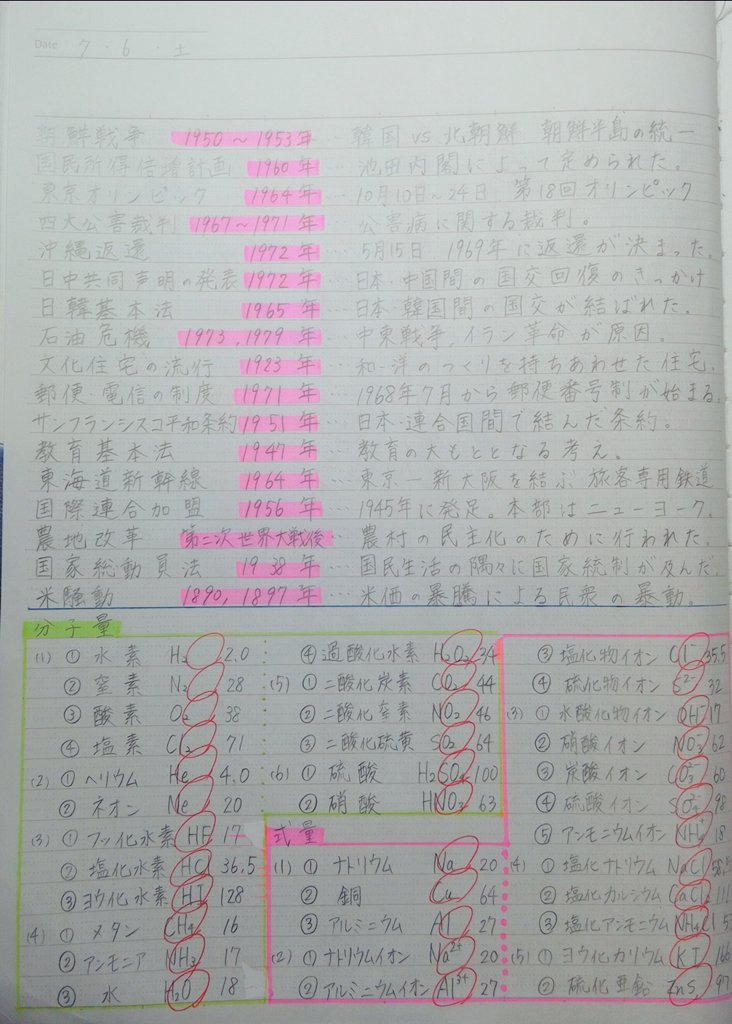 Date 7・6・土
朝鮮戦争 1950～1953年 … 韓国 vs 北朝鮮 朝鮮半島の統一
国民所得倍増計画 1960年 … 池田内閣によって定められた。
東京オリンピック 1964年 … 10月10日～24日 第18回オリンピック
四大公害裁判 1967～1971年 … 公害病に関する裁判。
沖縄返還 1972年 … 5月15日 1969年に返還が決まった。
日中共同声明の発表 1972年 … 日本・中国間の国交回復のきっかけ
日韓基本法 1965年 … 日本・韓国間の国交が結ばれた。
石油危機 1973,1979年 … 中東戦争,イラン革命が原因。
文化住宅の流行 1923年 … 和・洋のつくりを持ちあわせた住宅。
郵便・電信の制度 1971年 … 1968年7月から郵便番号制が始まる。
サンフランシスコ平和条約 1951年 … 日本・連合国間で結んだ条約。
教育基本法 1947年 … 教育の大もととなる考え。
東海道新幹線 1964年 … 東京ー新大阪を結ぶ旅客専用鉄道
国際連合加盟 1956年 … 1945年に発足。本部はニューヨーク。
農地改革 第二次世界大戦後 … 農村の民主化のために行われた。
国家総動員法 1938年 … 国民生活の隅々に国家統制が及んだ。
米騒動 1890,1897年 … 米価の暴騰による民衆の暴動。
分子量
(1) ① 水素 H₂ 2.0
② 窒素 N₂ 28
③ 酸素 O₂ 38
④ 塩素 Cl₂ 71
(2) ① ヘリウム He 4.0
② ネオン Ne 20
(3) ① フッ化水素 HF 17
② 塩化水素 HCl 36.5
③ ヨウ化水素 HI 128
(4) ① メタン CH₄ 16
② アンモニア NH₃ 17
③ 水 H₂O 18
④ 過酸化水素 H₂O₂ 34
(5) ① 二酸化炭素 CO₂ 44
② 二酸化窒素 NO₂ 46
③ 二酸化硫黄 SO₂ 64
(6) ① 硫酸 H₂SO₄ 100
② 硝酸 HNO₃ 63
式量
(1) ① ナトリウム Na 20
② 銅 Cu 64
③ アルミニウム Al 27
(2) ① ナトリウムイオン Na²⁺ 20
② アルミニウムイオン Al³⁺ 27
③ 塩化物イオン Cl⁻ 35.5
④ 硫化物イオン S²⁻ 32
(3) ① 水酸化物イオン OH⁻ 17
② 硝酸イオン NO₃⁻ 62
③ 炭酸イオン CO₃²⁻ 60
④ 硫酸イオン SO₄²⁻ 98
⑤ アンモニウムイオン NH₄⁺ 18
(4) ① 塩化ナトリウム NaCl
② 塩化カルシウム CaCl₂ 111
③ 塩化アンモニウム NH₄Cl
(5) ① ヨウ化カリウム KI 166
② 硫化亜鉛 ZnS 97